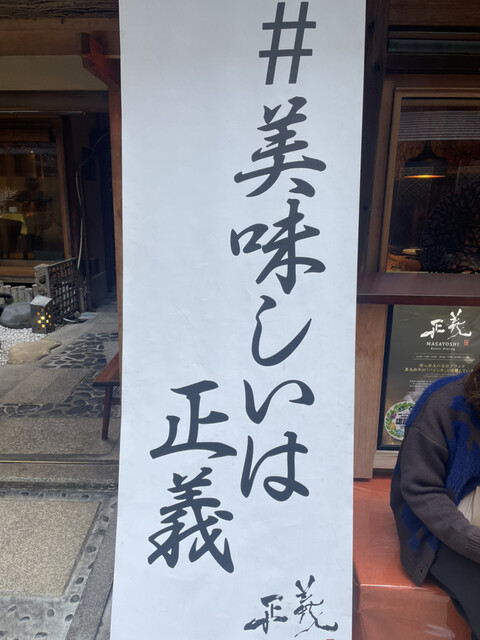 #美味しいは
正義
正義
正義
MASATOSHI